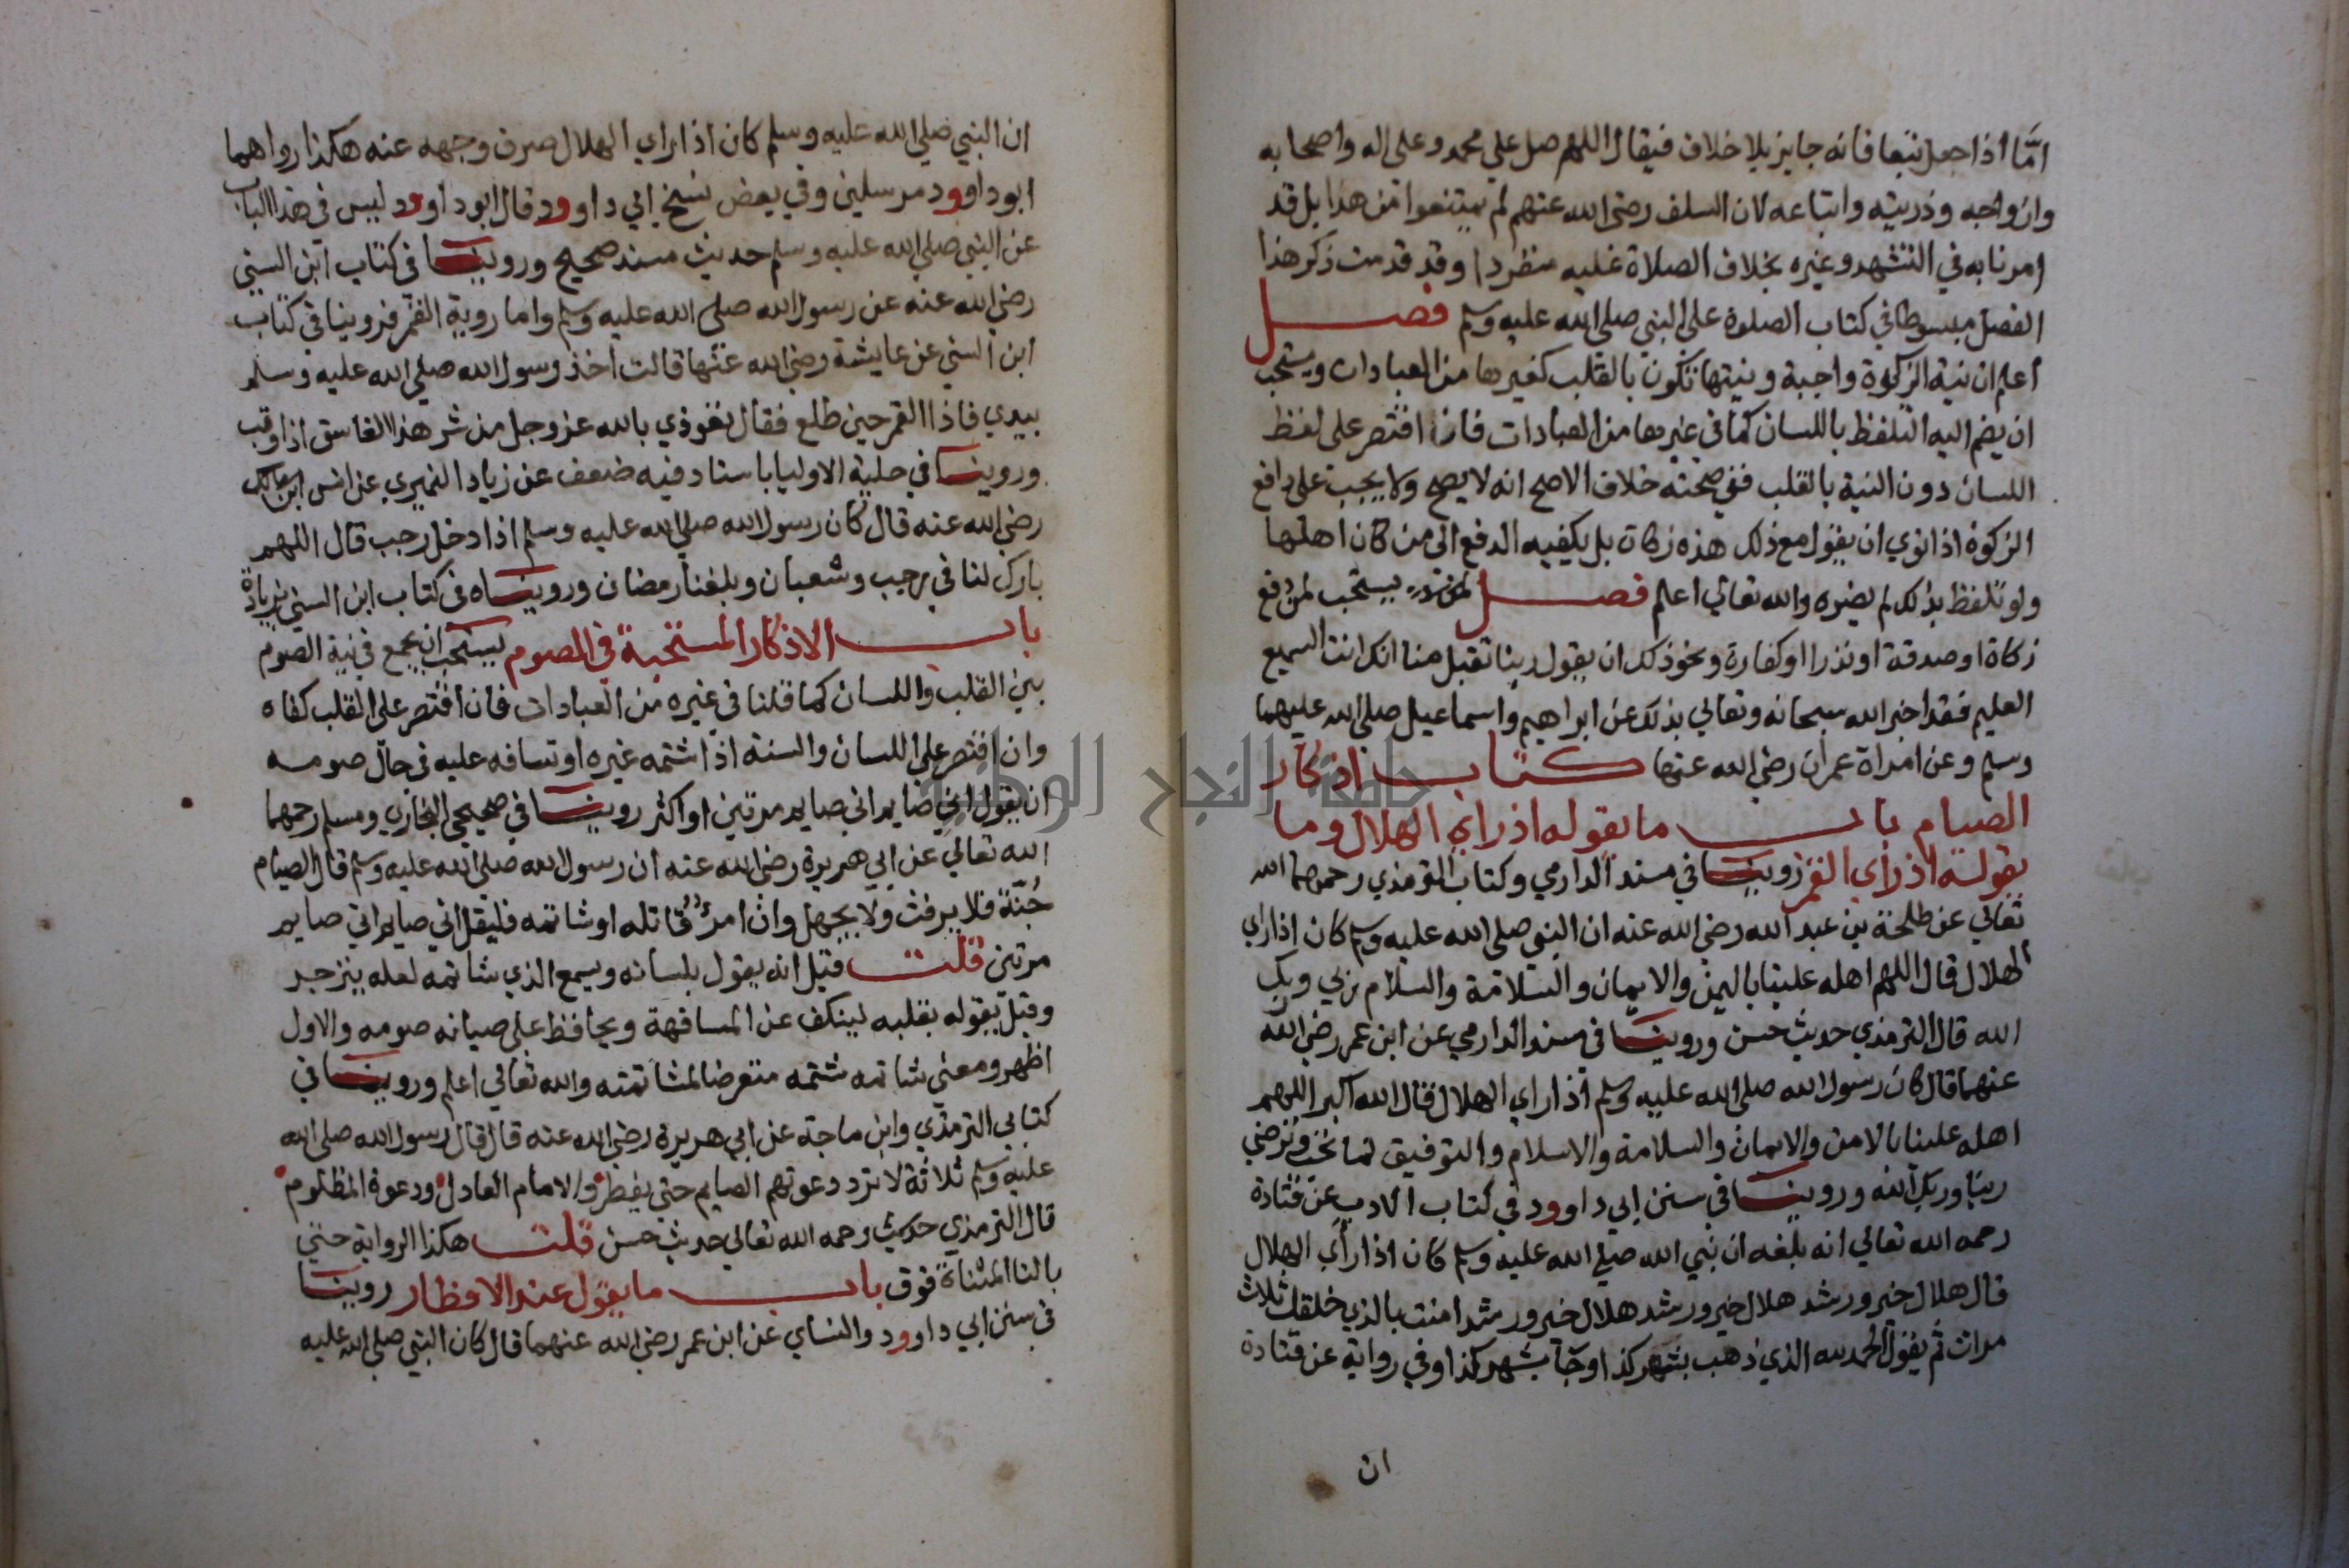 امّا اذا جعل تبعا فانه جايز بلا خلاف فيقال اللهم صل علي محمد وعلى اله واصحابه
وازواجه وذريته واتباعه لان السلف رضي الله عنهم لم يمتنعوا من هذا بل قد
امرنا به في التشهد وغيره بخلاف الصلاة عليه منفردا وقد قدمت ذكر هذا
الفصل مبسوطا في كتاب الصلوة على النبي صلى الله عليه وسلم فصل
اعلم ان نية الزكوة واجبة ونيتها تكون بالقلب كغيرها من العبادات ويستحب
ان يضم اليه التلفظ باللسان كما في غيرها من العبادات فان اقتصر على لفظ
اللسان دون النية بالقلب ففي صحته خلاف الاصح انه لا يصح ولا يجب على دافع
الزكوة اذا نوي ان يقول مع ذلك هذه زكات بل يكفيه الدفع الى من كان اهلها
ولو تلفظ بذلك لم يضره والله تعالي اعلم فصل يستحب لمن دفع
زكاة او صدقة او نذرا او كفارة ونحو ذلك ان يقول ربنا تقبل منا انك انت السميع
العليم فقد اخبر الله سبحانه وتعالي بذلك عن ابراهيم واسماعيل صلى الله عليهما
وسلم وعن امراة عمران رضي الله عنها كتاب اذكار
الصيام باب ما يقوله اذ راي الهلال وما
يقوله اذ راي القمر روينا في مسند الدارمي وكتاب الترمذي رحمهما الله
تعالي عن طلحة بن عبد الله رضي الله عنه ان النبي صلى الله عليه وسلم كان اذا راي
الهلال قال اللهم اهله علينا باليمن والايمان والسلامة والسلام ربي وربك
الله قال الترمذي حديث حسن وروينا في مسند الدارمي عن ابن عمر رضي الله
عنهما قال كان رسول الله صلى الله عليه وسلم اذا راي الهلال قال الله اكبر اللهم
اهله علينا بالامن والايمان والسلامة والاسلام والتوفيق لما تحب وترضي
ربنا وربك الله وروينا في سنن ابي داوود في كتاب الادب عن قتادة
رحمه الله تعالي انه بلغه ان نبي الله صلي الله عليه وسلم كان اذا راي الهلال
قال هلال خير ورشد هلال خير ورشد هلال خير ورشد امنت بالذي خلقك ثلاث
مرات ثم يقول الحمد لله الذي ذهب بشهر كذا وجآ بشهر كذا وفي رواية عن قتادة
ان
ان النبي صلي الله عليه وسلم كان اذا راي الهلال صرف وجهه عنه هكذا رواهما
ابو داوود مرسلين وفي بعض نسخ ابي داوود قال ابو داوود ليس في هذا الباب
عن النبي صلي الله عليه وسلم حديث مسند صحيح وروينا في كتاب ابن السني
رضي الله عنه عن رسول الله صلى الله عليه وسلم واما روية القمر فروينا في كتاب
ابن السني عن عايشة رضي الله عنها قالت اخذ رسول الله صلي الله عليه وسلم
بيدي فاذا القمر حين طلع فقال تعوذي بالله عز وجل من شر هذا الغاسق اذا وقب
وروينا في حلية الاوليا باسناد فيه ضعف عن زياد النميري عن انس ابن مالك
رضي الله عنه قال كان رسول الله صلي الله عليه وسلم اذا دخل رجب قال اللهم
بارك لنا في رجب وشعبان وبلغنا رمضان وروينساه في كتاب ابن السني بزيادة
باب الاذكار المستحبة في الصوم يستحب ان يجمع في نية الصوم
بين القلب واللسان كما قلنا في غيره من العبادات فان اقتصر على القلب كفاه
وان اقتصر على اللسان والسنة اذا شتمه غيره او تسافه عليه في حال صومه
ان يقول اني صايم اني صايم مرتين او اكثر روينا في صحيحي البخاري ومسلم رحمهما
الله تعالي عن ابي هريرة رضي الله عنه ان رسول الله صلى الله عليه وسلم قال الصيام
جُنّة فلا يرفث ولا يجهل وان امرؤ قاتله او شاتمه فليقل اني صايم اني صايم
مرتين قلت قيل انه يقول بلسانه ويسمع الذي شاتمه لعله ينزجر
وقيل يقوله بقلبه لينكف عن المسافهة ويحافظ على صيانه صومه والاول
اظهر ومعنى شاتمه شتمه متعرضا لمشاتمته والله تعالي اعلم وروينا في
كتابي الترمذي وابن ماجة عن ابي هريرة رضي الله عنه قال قال رسول الله صلى الله
عليه وسلم ثلاثة لا ترد دعوتهم الصايم حتي يفطر والامام العادل ودعوة المظلوم
قال الترمذي حديث رحمه الله تعالي حديث حسن قلت هكذا الرواية حتي
بالتا المثناة فوق باب ما يقول عند الافطار روينا
في سنن ابي داوود والنساي عن ابن عمر رضي الله عنهما قال كان النبي صلى الله عليه
جامعة النجاح الوطنية